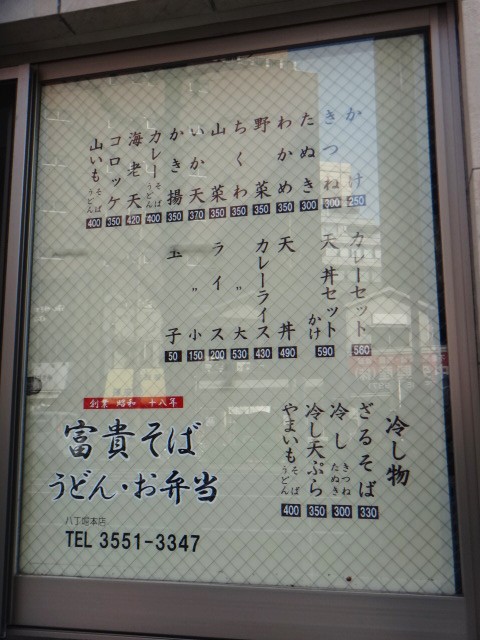 かけ 250
きつね 300
たぬき 300
わかめ 350
野菜 350
ちくわ 350
山菜 350
いか天 370
かき揚 350
カレー そば うどん 400
海老天 420
コロッケ 350
山いも そば うどん 400
カレーセット 560
天丼セット かけ 590
天丼 490
カレーライス 430
〃 大 530
ライス 200
〃 小 150
玉子 50
冷し物
ざるそば 330
冷し きつね たぬき 300
冷し天ぷら 350
やまいも そば うどん 400
創業 昭和 十八年
富貴そば
うどん・お弁当
八丁堀本店
TEL 3551-3347